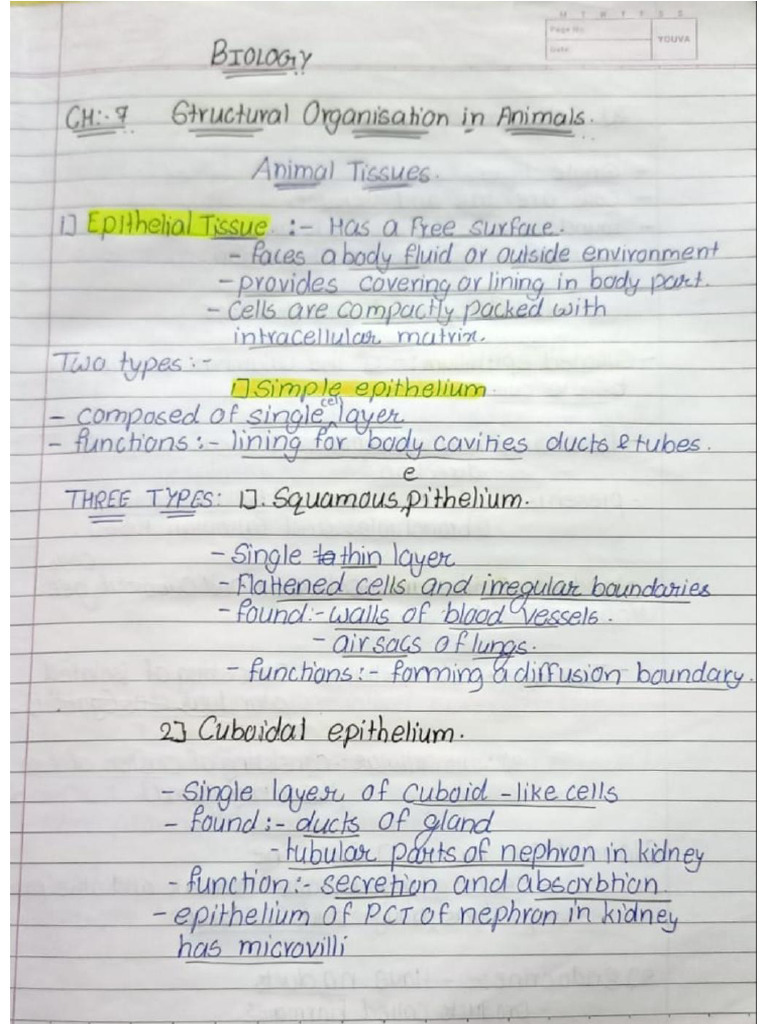 M T W T F S S
Page No.:
Date:
YOUVA
BIOLOGY
CH:- 7 Structural Organisation in Animals.
Animal Tissues.
1] Epithelial Tissue :- Has a free surface.
- faces a body fluid or outside environment
- provides covering or lining in body part.
- cells are compactly packed with
intracellular matrix.
Two types :-
1] Simple epithelium
- composed of single cell layer
- functions :- lining for body cavities ducts & tubes.
THREE TYPES: 1]. Squamous epithelium.
- Single thin layer
- Flattened cells and irregular boundaries
- found :- walls of blood vessels.
- air sacs of lungs.
- functions :- forming a diffusion boundary.
2] Cuboidal epithelium.
- Single layer of cuboid - like cells
- found :- ducts of gland
- tubular parts of nephron in kidney
- function :- secretion and absorbtion.
- epithelium of PCT of nephron in kidney
has microvilli